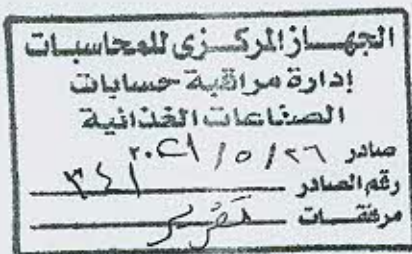 الجهاز المركزى للمحاسبات
إدارة مراقبة حسابات
الصناعات الغذائية
صادر ٢٦ / ٥ / ٢٠٢١
رقم الصادر ٣٤١
مرفقات